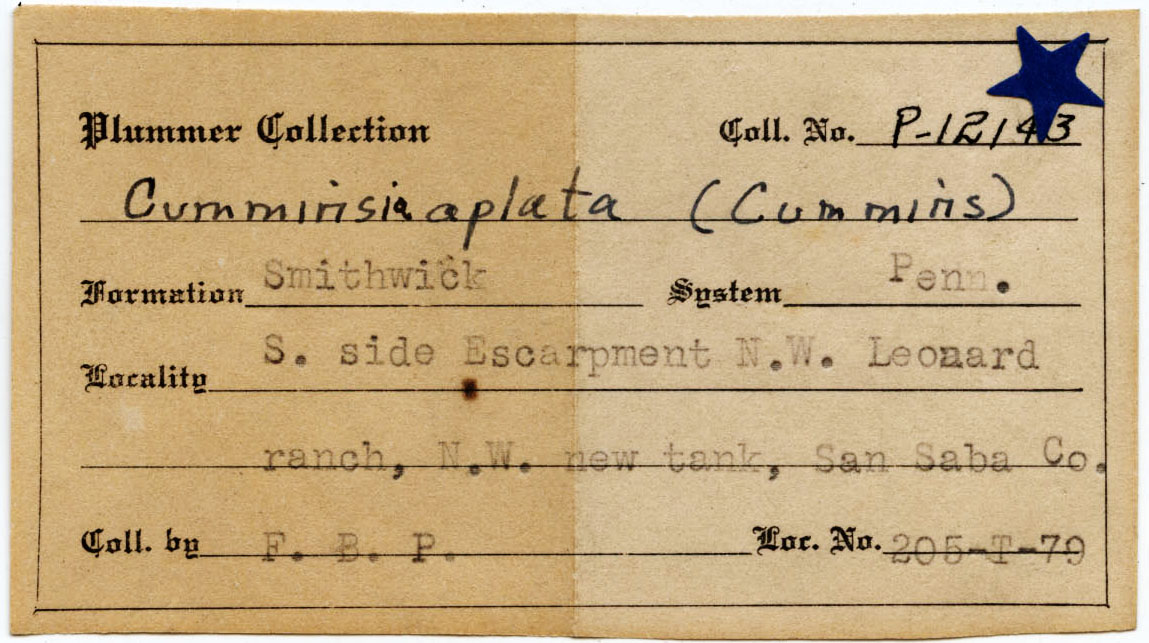 Plummer Collection Coll. No. P-12143
Cumminsia aplata (Cummins)
Formation Smithwick System Penn.
Locality S. side Escarpment N.W. Leonard
ranch, N.W. new tank, San Saba Co.
Coll. by F. B. P. Loc. No. 205-T-79